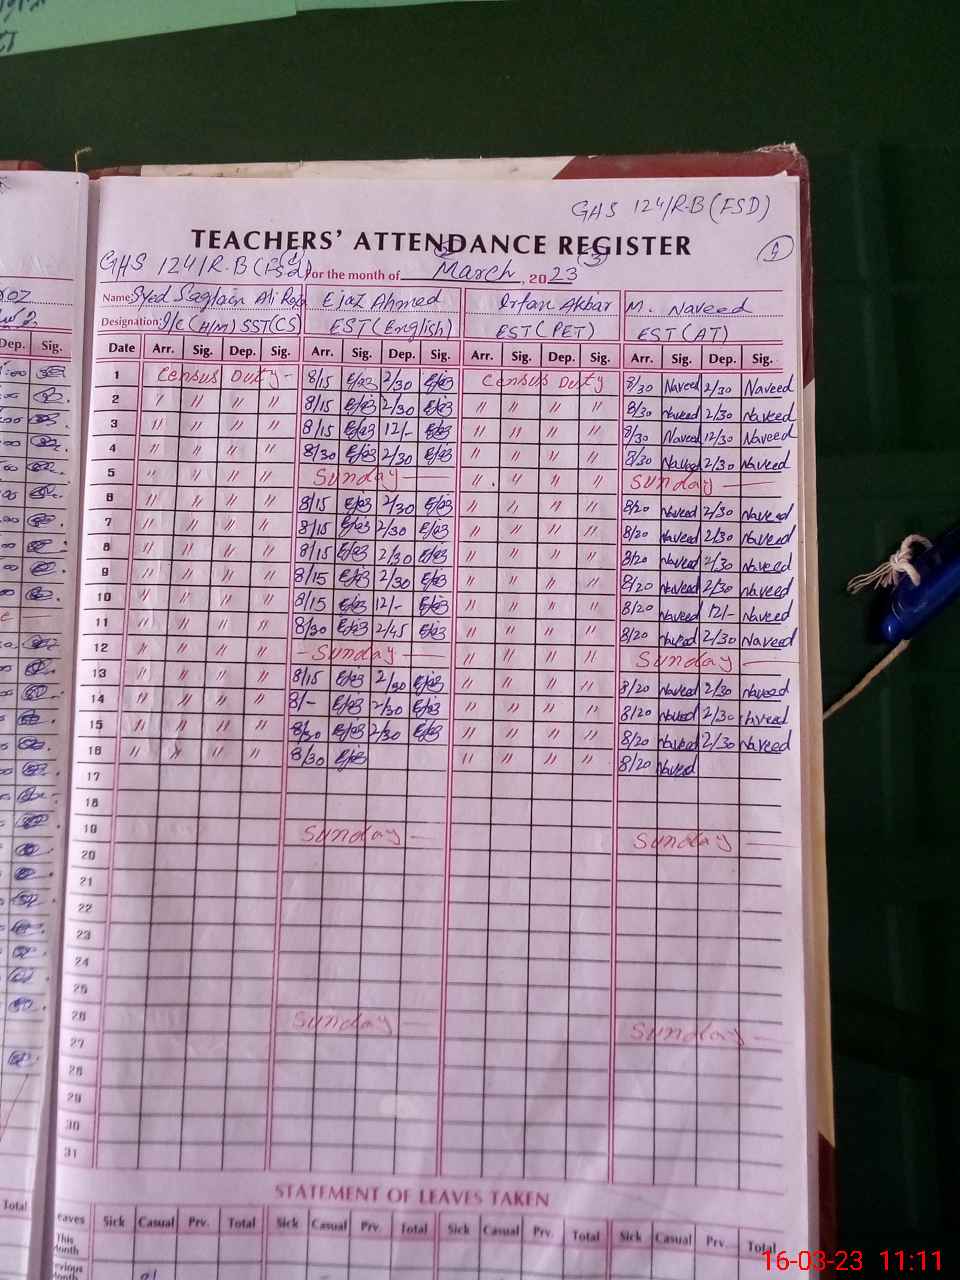 GHS 124/R.B (FSD)
TEACHERS' ATTENDANCE REGISTER
GHS 124/R.B (Fsd) For the month of March, 2023
Name: Syed Saqlain Ali Raza Ejaz Ahmed Irfan Akbar M. Naveed
Designation: I/C (H/M) SST (CS) EST (English) EST (PET) EST (AT)
Dep. Sig. Date Arr. Sig. Dep. Sig. Arr. Sig. Dep. Sig. Arr. Sig. Dep. Sig. Arr. Sig. Dep. Sig.
1 Census Duty - 8/15 Ejaz 2/30 Ejaz Census Duty 8/30 Naveed 2/30 Naveed
2 〃 〃 〃 〃 8/15 Ejaz 2/30 Ejaz 〃 〃 〃 〃 8/30 Naveed 2/30 Naveed
3 〃 〃 〃 〃 8/15 Ejaz 12/- Ejaz 〃 〃 〃 〃 8/30 Naveed 12/30 Naveed
4 〃 〃 〃 〃 8/30 Ejaz 2/30 Ejaz 〃 〃 〃 〃 8/30 Naveed 2/30 Naveed
5 〃 〃 〃 〃 Sunday — 〃 〃 〃 〃 Sunday —
6 〃 〃 〃 〃 8/15 Ejaz 2/30 Ejaz 〃 〃 〃 〃 8/20 Naveed 2/30 Naveed
7 〃 〃 〃 〃 8/15 Ejaz 2/30 Ejaz 〃 〃 〃 〃 8/20 Naveed 2/30 Naveed
8 〃 〃 〃 〃 8/15 Ejaz 2/30 Ejaz 〃 〃 〃 〃 8/20 Naveed 2/30 Naveed
9 〃 〃 〃 〃 8/15 Ejaz 2/30 Ejaz 〃 〃 〃 〃 8/20 Naveed 2/30 Naveed
10 〃 〃 〃 〃 8/15 Ejaz 12/- Ejaz 〃 〃 〃 〃 8/20 Naveed 12/- Naveed
11 〃 〃 〃 〃 8/30 Ejaz 2/45 Ejaz 〃 〃 〃 〃 8/20 Naveed 2/30 Naveed
12 〃 〃 〃 〃 - Sunday — 〃 〃 〃 〃 Sunday —
13 〃 〃 〃 〃 8/15 Ejaz 2/30 Ejaz 〃 〃 〃 〃 8/20 Naveed 2/30 Naveed
14 〃 〃 〃 〃 8/- Ejaz 2/30 Ejaz 〃 〃 〃 〃 8/20 Naveed 2/30 Naveed
15 〃 〃 〃 〃 8/30 Ejaz 2/30 Ejaz 〃 〃 〃 〃 8/20 Naveed 2/30 Naveed
16 〃 〃 〃 〃 8/30 Ejaz 〃 〃 〃 〃 8/20 Naveed
17
18
19 Sunday — Sunday —
20
21
22
23
24
25
26 Sunday — Sunday —
27
28
29
30
31
STATEMENT OF LEAVES TAKEN
Total Leaves Sick Casual Prv. Total Sick Casual Prv. Total Sick Casual Prv. Total Sick Casual Prv. Total
This Month
Previous Month
16-03-23 11:11